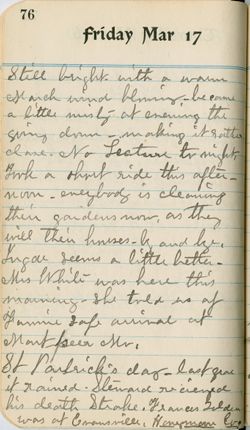 76
Friday Mar 17
Still bright with a warm
March wind blowing - became
a little misty at evening the
going down - making it rather
close. No Lecture to night
Took a short ride this after-
noon - everybody is cleaning
their gardens now, as they
will their houses - by and by.
seems a little better -
Mrs White was here this
morning - she told us of
safe arrival at
Mo.
St Patrick's day - last year
it rained - Steward recieved
his death Stroke. Frances
was at Evansville,